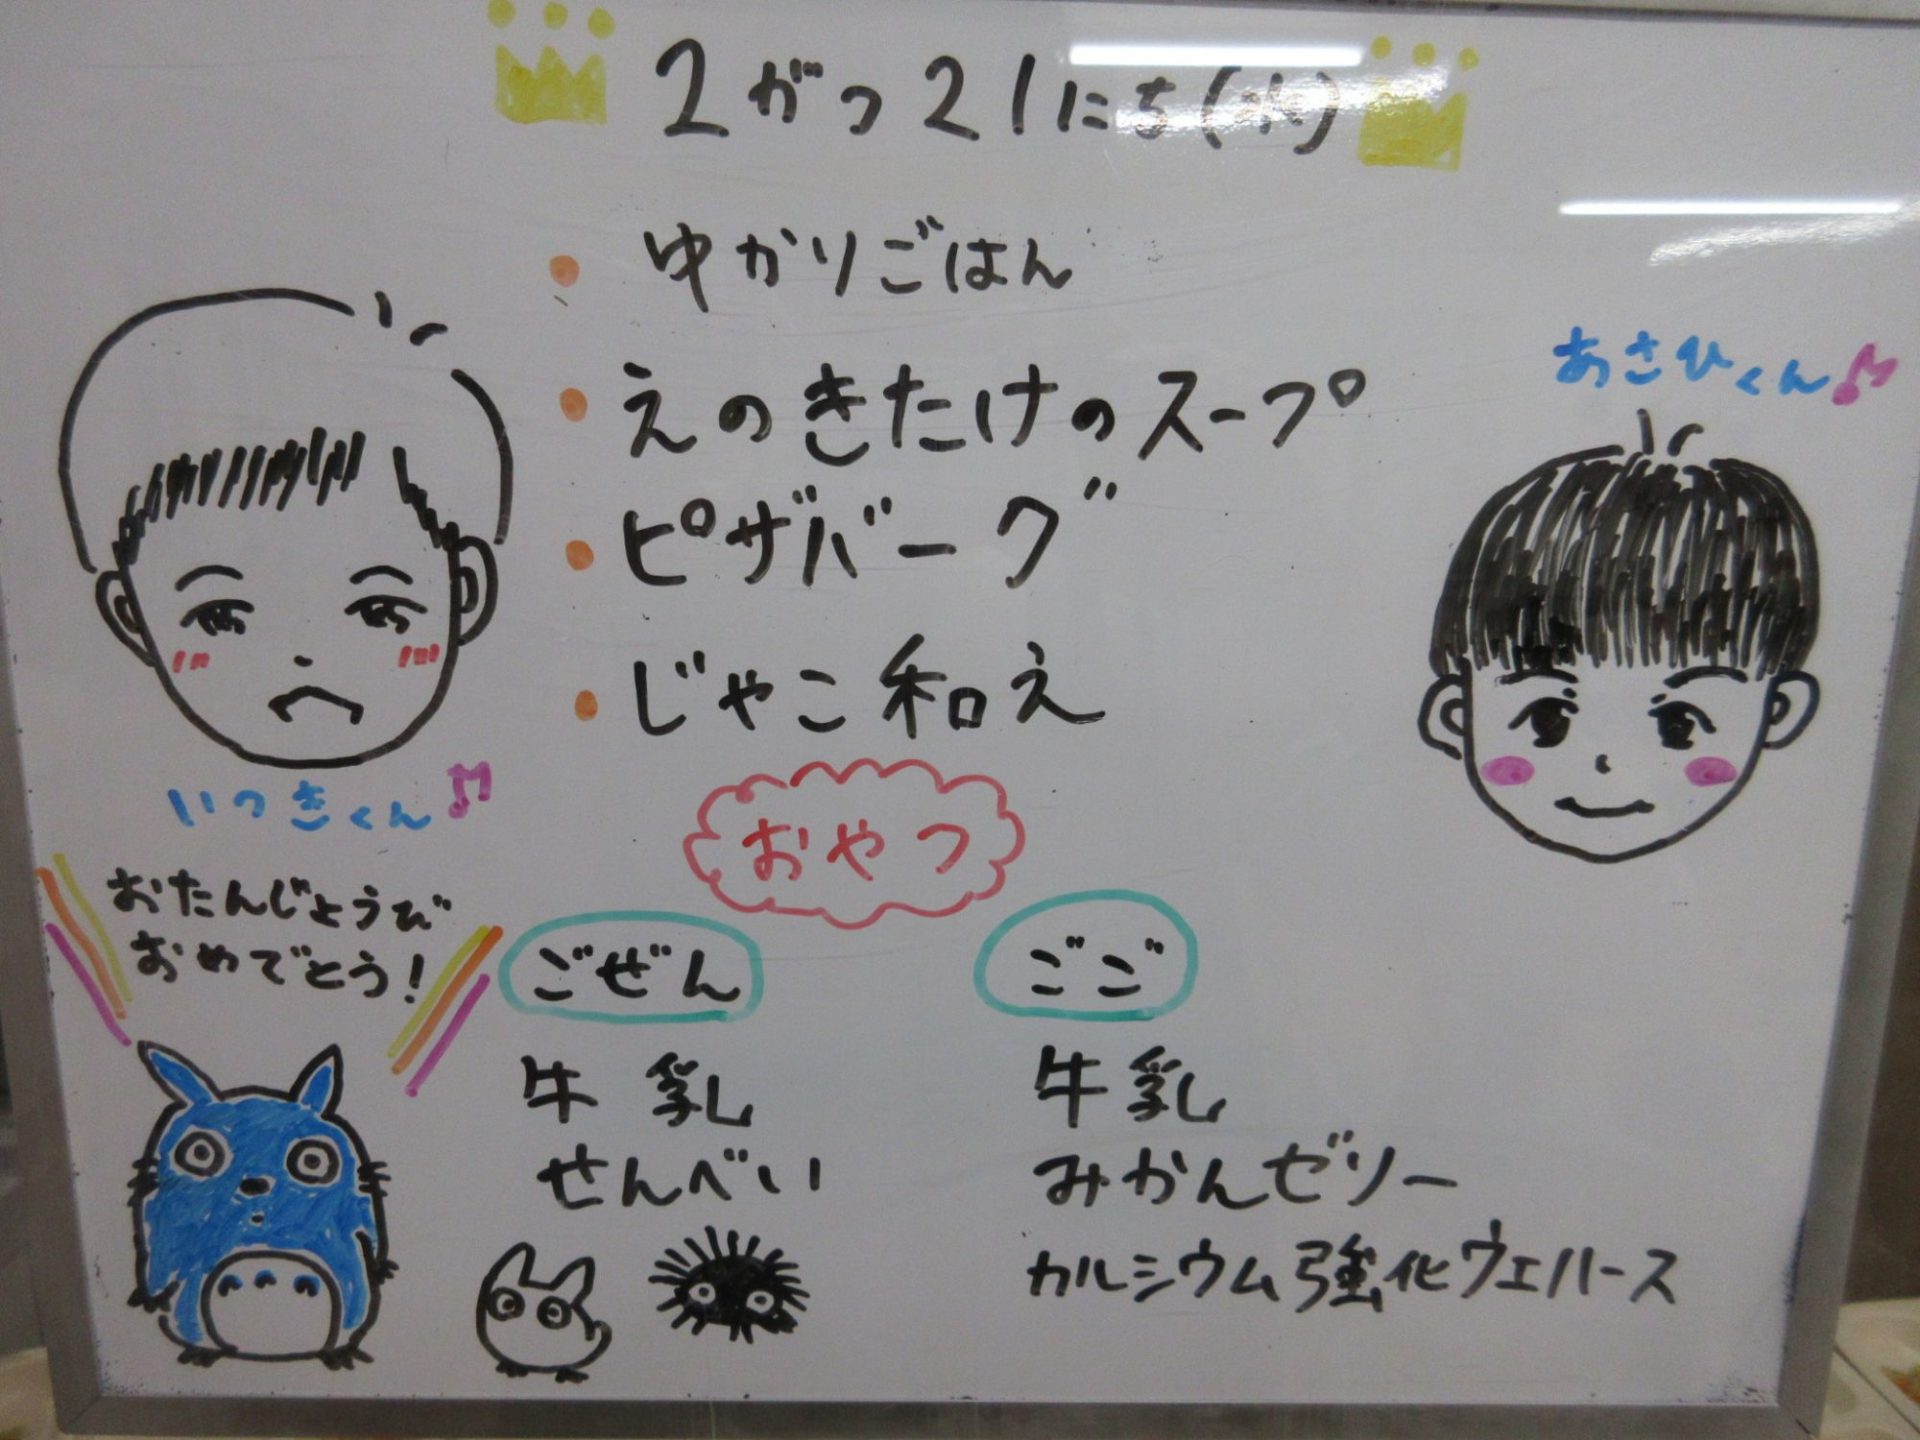 2がつ21にち(水)
・ゆかりごはん
・えのきたけのスープ
・ピザバーグ
・じゃこ和え
あさひくん♪
いつきくん♪
おたんじょうび
おめでとう!
おやつ
ごぜん
牛乳
せんべい
ごご
牛乳
みかんゼリー
カルシウム強化ウエハース